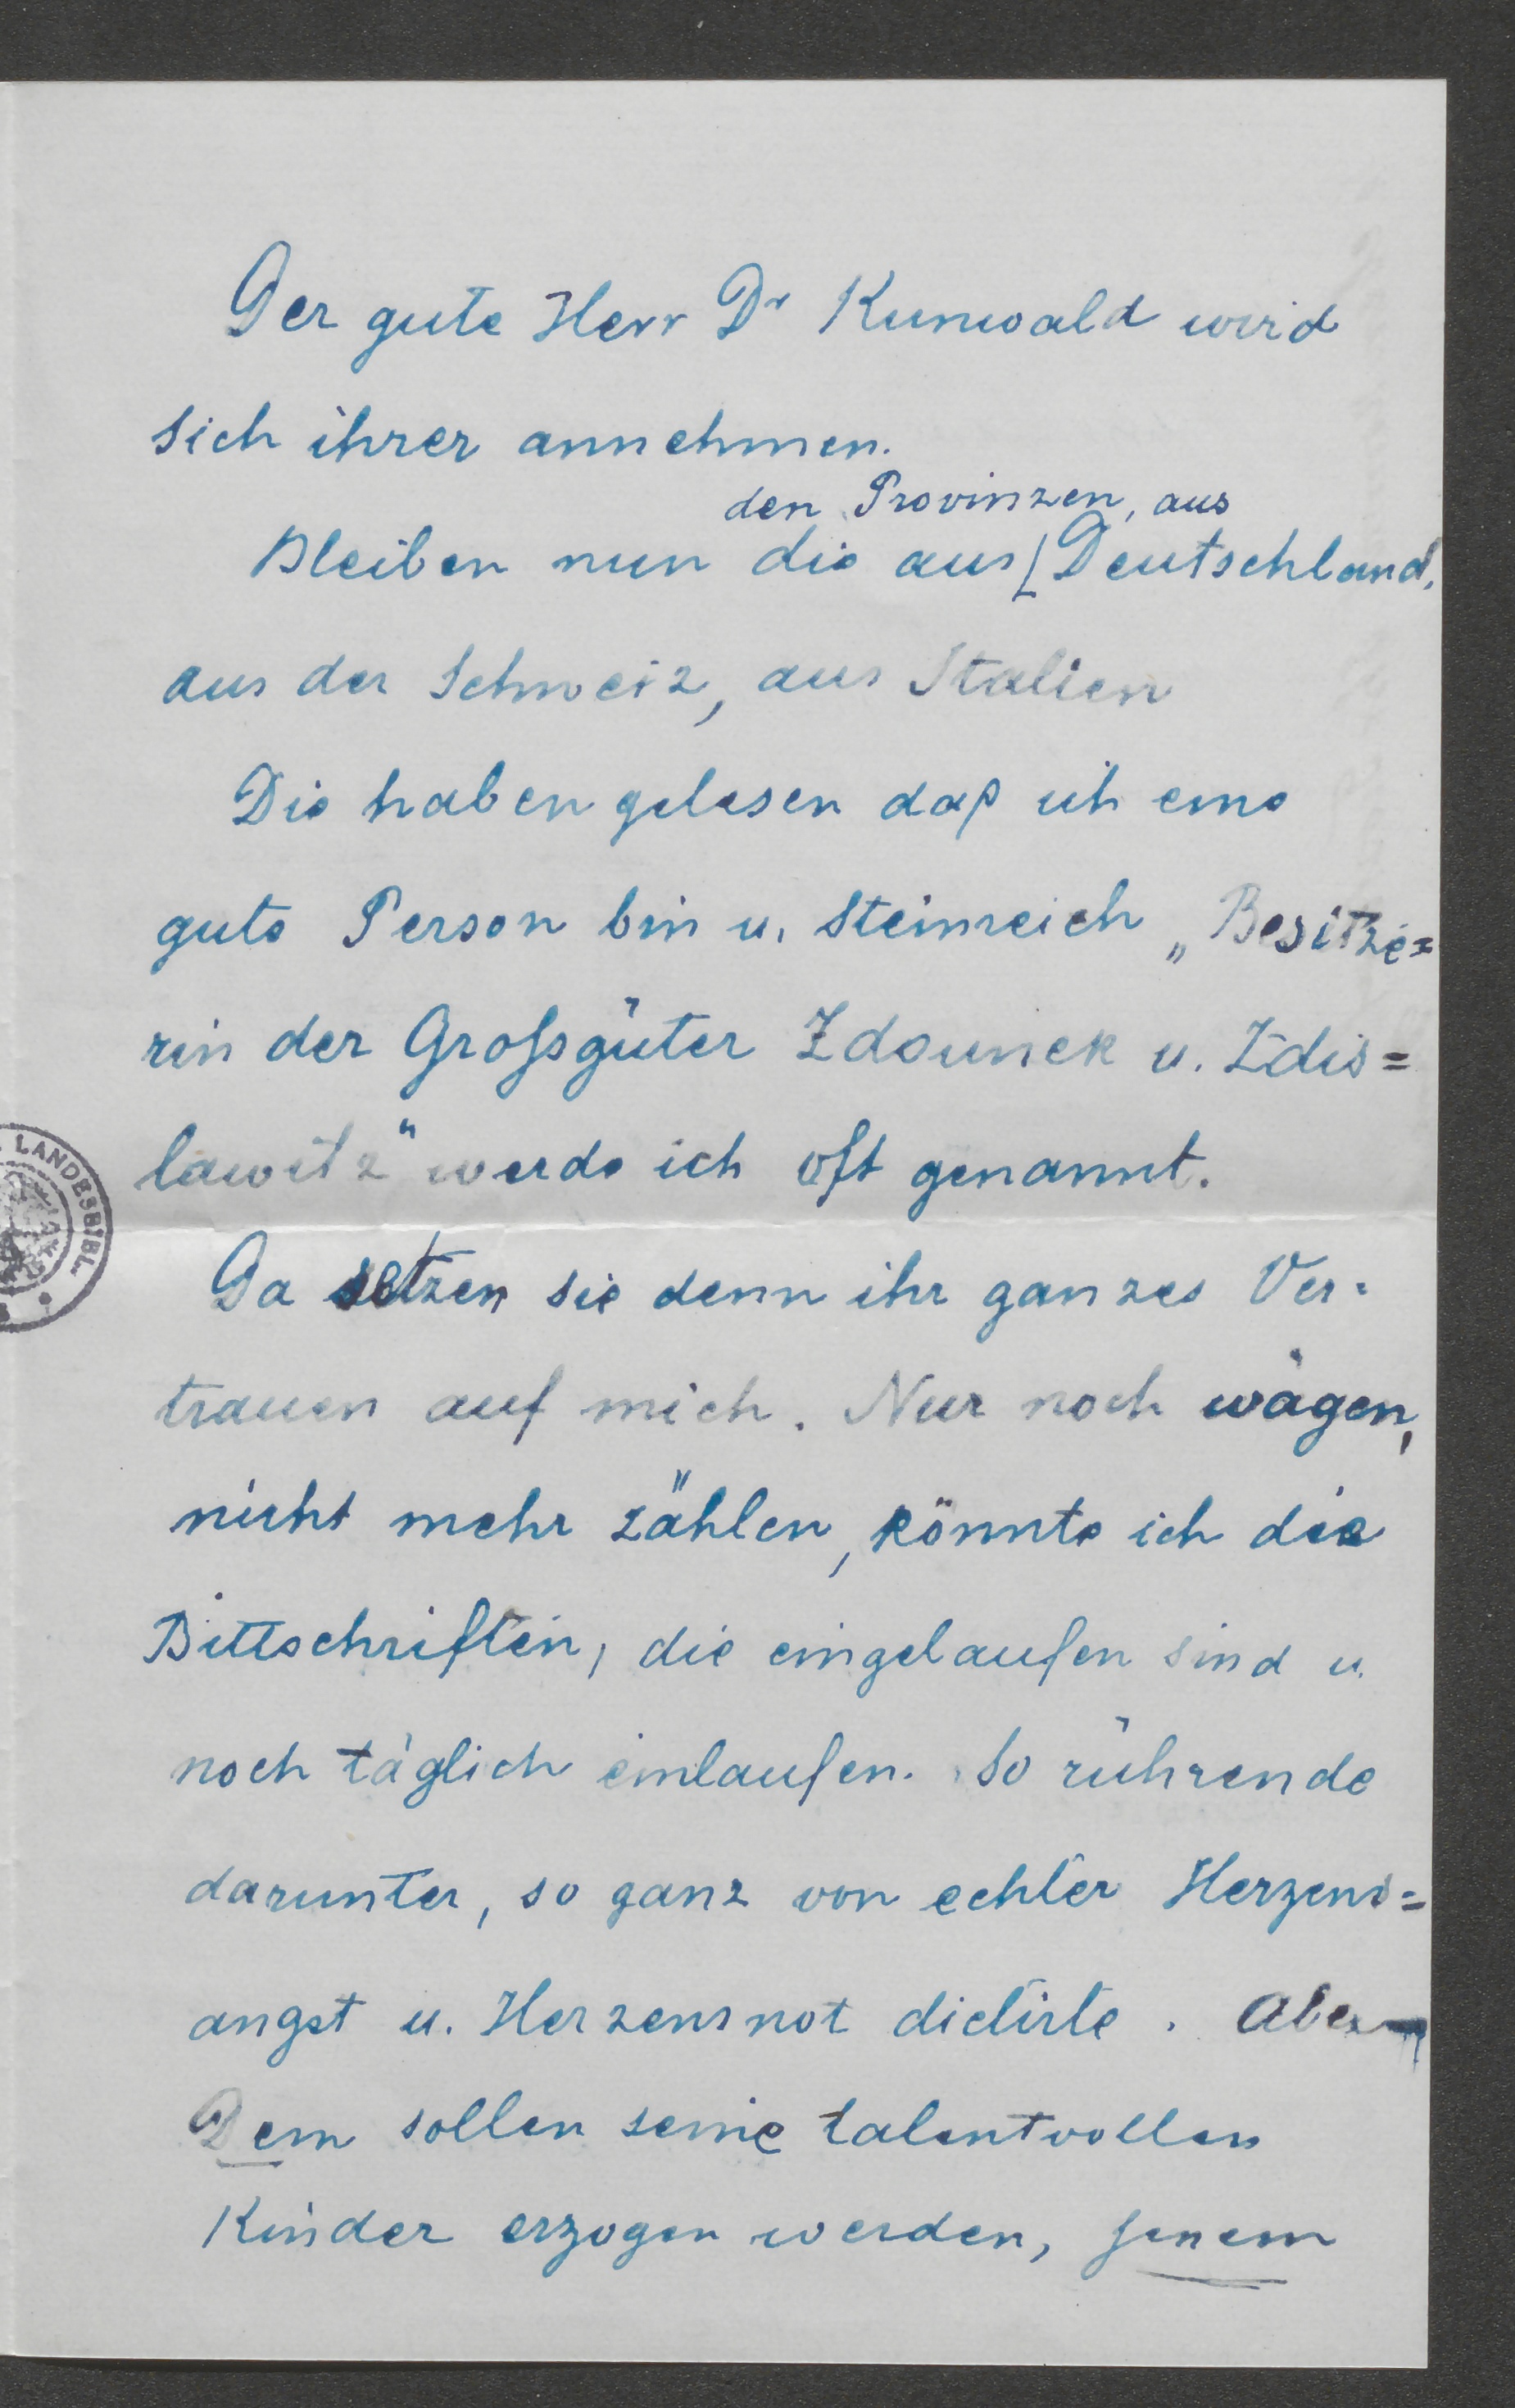 Der gute Herr Dr Kunwald wird
sich ihrer annehmen.
den Provinzen, aus
Bleiben nun die aus [Deutschland,
aus der Schweiz, aus Italien
Die haben gelesen daß ich eine
gute Person bin u. steinreich „Besitze=
rin der Großgüter Zdounek u. Zdis=
lawitz" werde ich oft genannt.
Da setzen sie denn ihr ganzes Ver=
trauen auf mich. Nur noch wägen,
nicht mehr zählen, könnte ich die
Bittschriften, die eingelaufen sind u.
noch täglich einlaufen. So rührende
darunter, so ganz von echter Herzens=
angst u. Herzensnot dictirte. Aber
Dem sollen seine talentvollen
Kinder erzogen werden, jenem
LANDESBIBL.